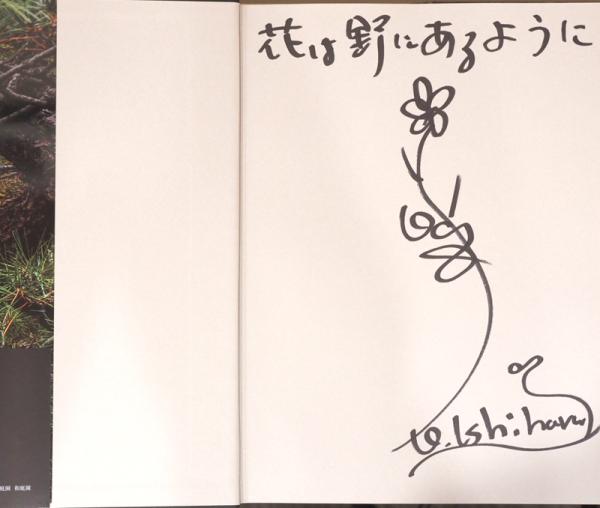 花は野にあるように
Ishihara
和庭園